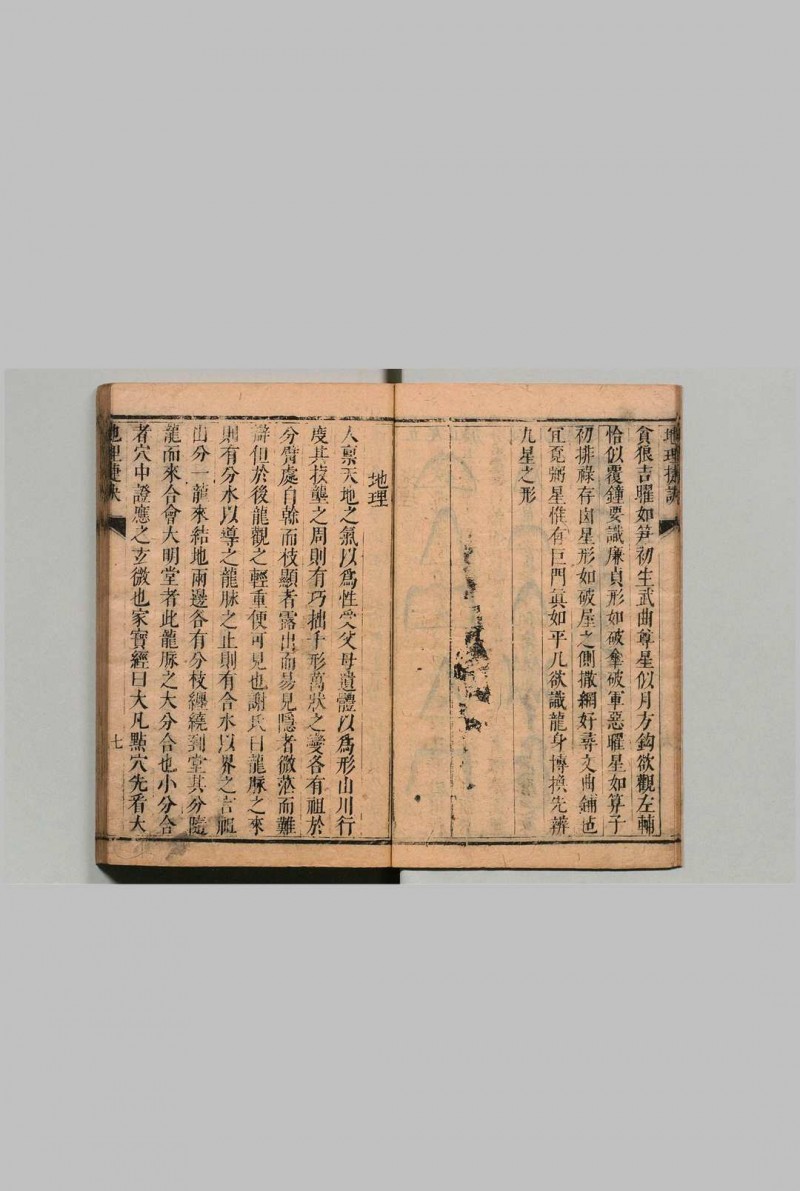 地理捷訣
貪狼吉曜如笋初生武曲尊星似月方鈎欲觀左輔
恰似覆鐘要識廉貞形如破傘破軍惡曜星如算子
初排祿存凶星形如破屋之側撒網好尋文曲鋪毡
宜覔弼星惟有巨門眞如平几欲識龍身博換先辨
九星之形
地理
人禀天地之氣以爲性受父母遺體以爲形山川行
度其技壟之周則有巧拙千形萬狀之變各有祖於
分臂處自榦而枝顯者露出而易見隱者微茫而難
辯但於後龍觀之輕重便可見也謝氏曰龍脉之來
則有分水以導之龍脉之止則有合水以界之言祖
山分一龍來結地兩邊各有分枝纏繞到堂其分隨
龍而來合會大明堂者此龍脉之大分合也小分合
者穴中證應之玄微也家寶經曰大凡點穴先看大
地理捷訣
七